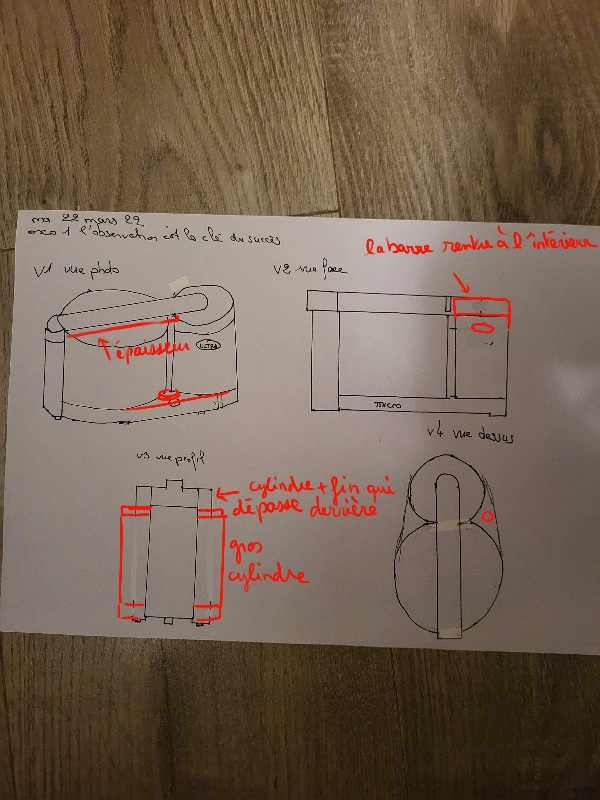 ma 22 mars 22
exo 1 l'observation est la clé du succès
la barre rentre à l'intérieur
V1 vue photo
V2 vue face
épaisseur
ULTRA
MICRO
V4 vue dessus
V3 vue profil
cylindre + fin qui
dépasse derrière
gros
cylindre